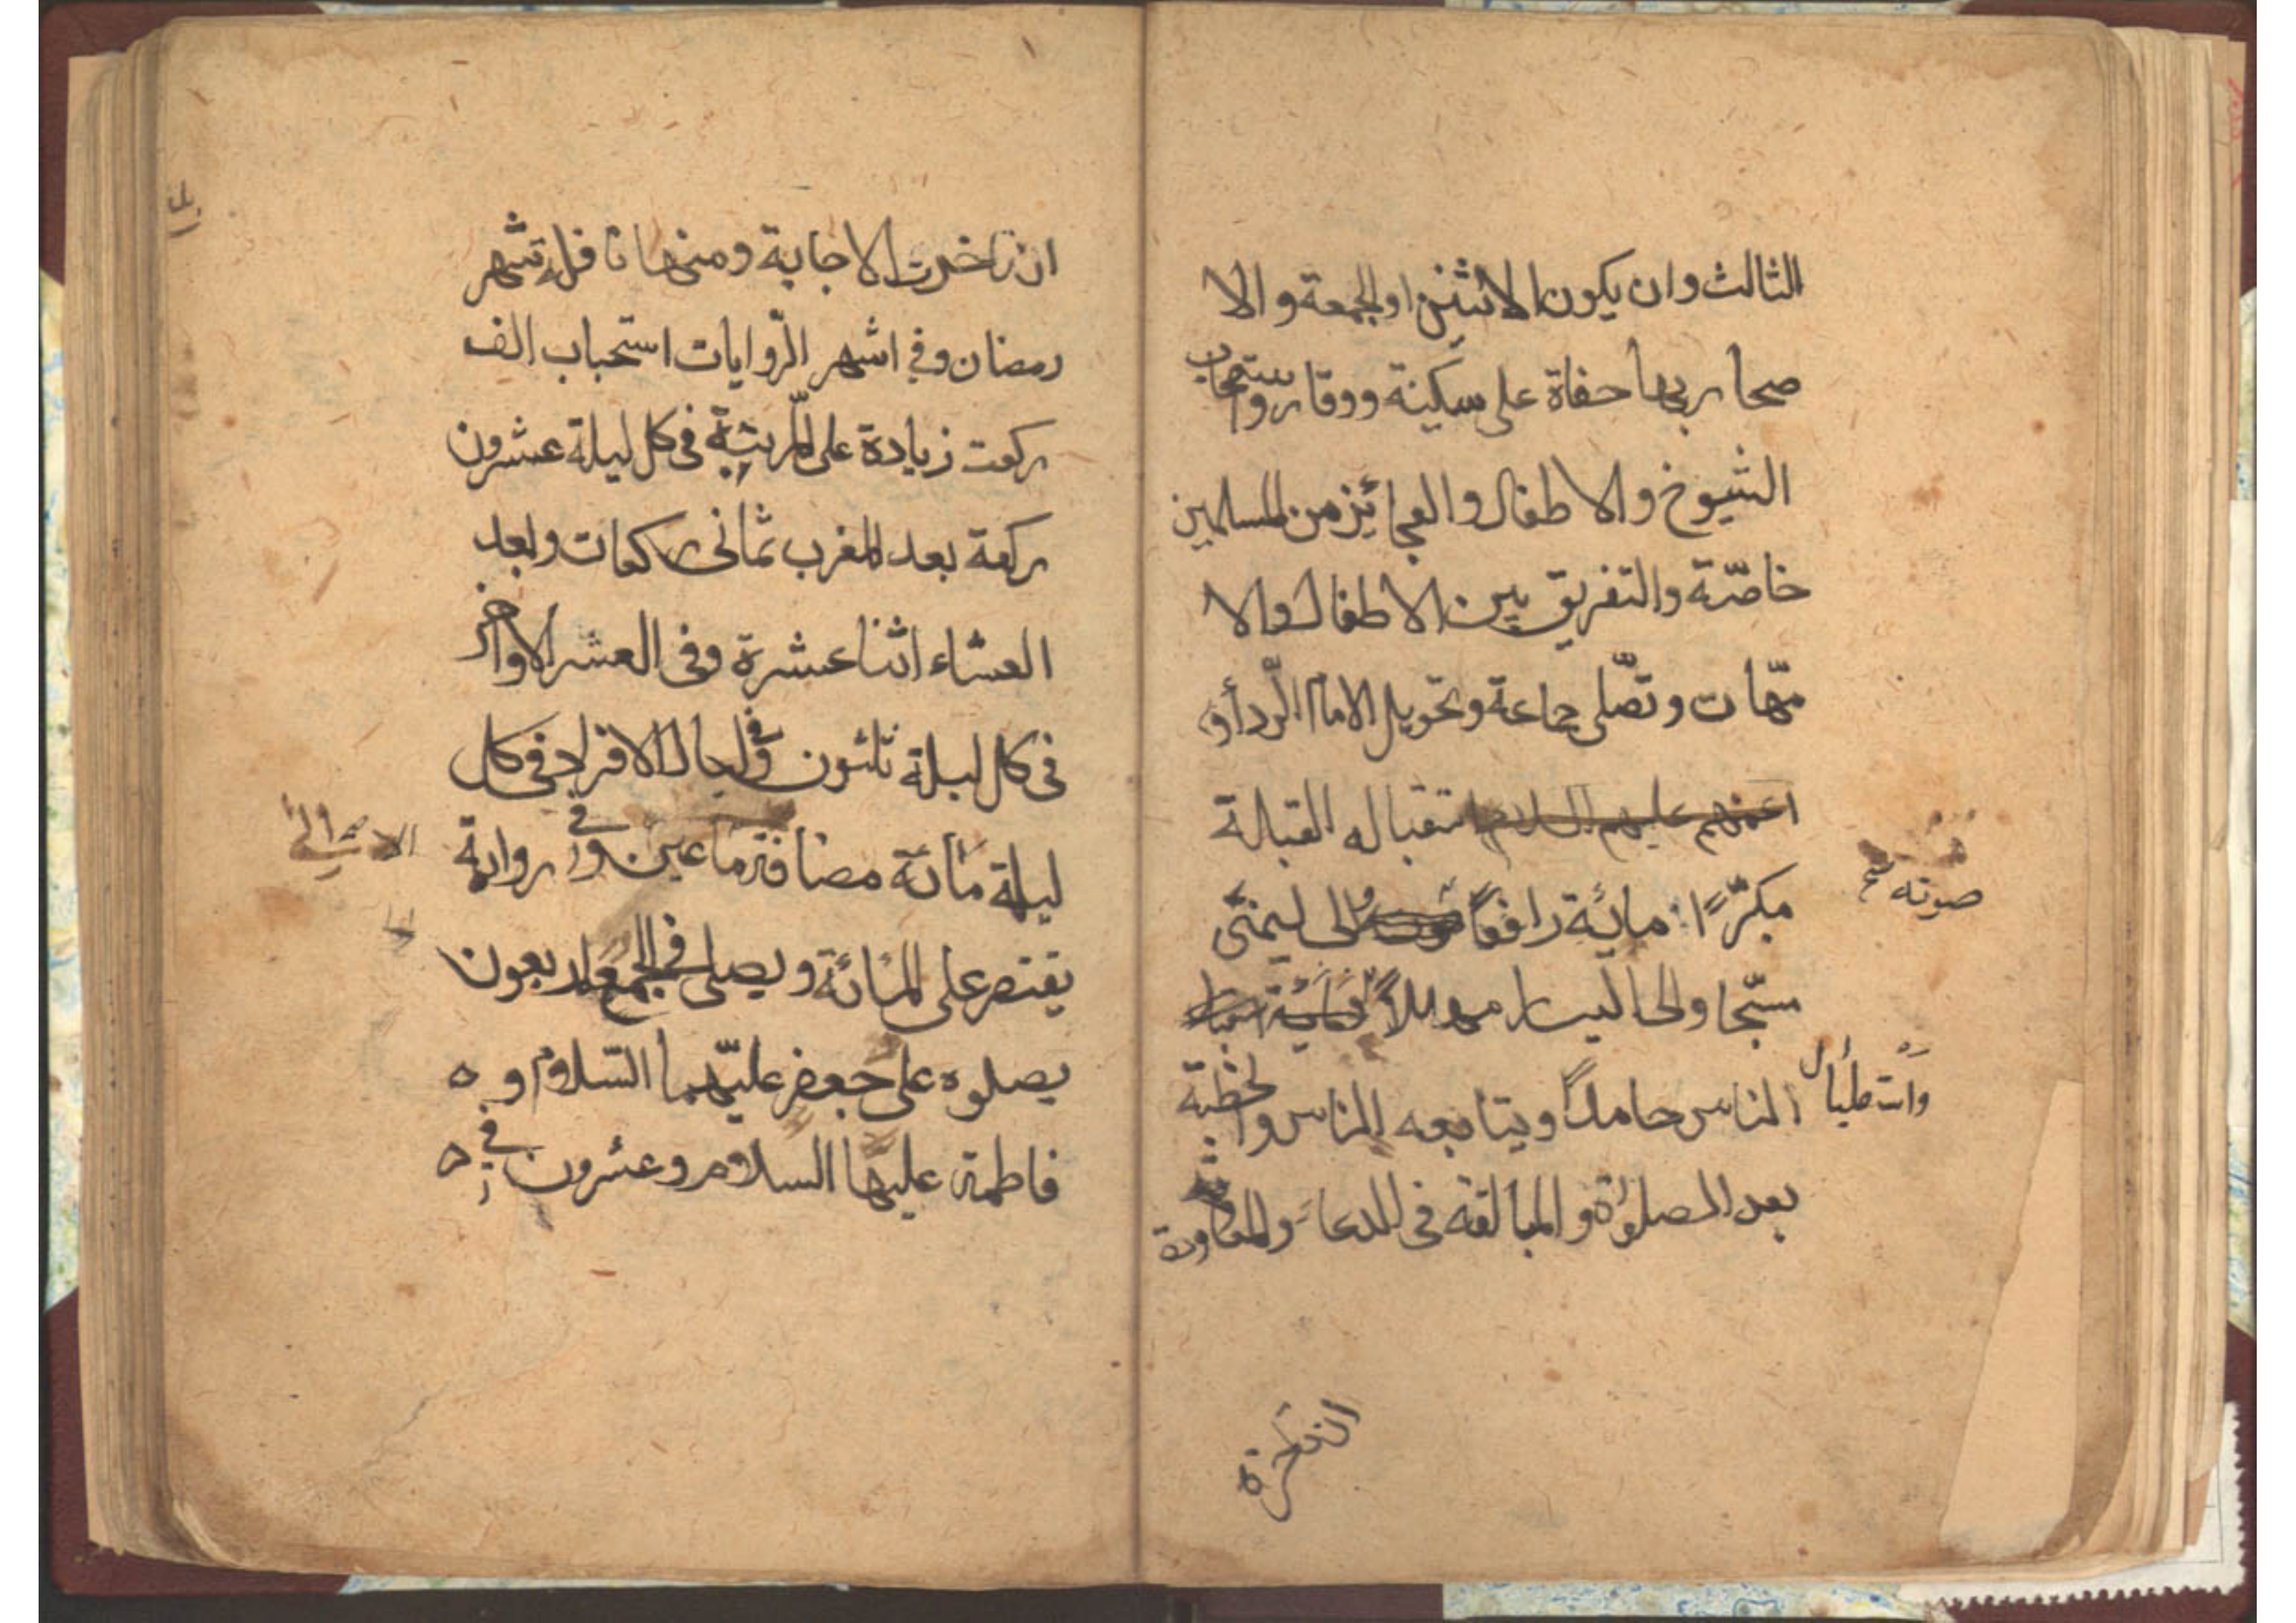 الثالث وان يكون الاثنين او الجمعة والا
صحار بها حفاة على سكينة ووقار واستصحاب
الشيوخ والاطفال والعجائيز من المسلمين
خاصّة والتفريق بين الاطفال والا
مّهات وتصّلى جماعة وتحويل الامام الرّدأ و
استقباله القبالة
مكبّرًا مائة رافعًا الى ليمنى
صوته
مسبّحا والى اليسار مهللاً
واستقبال
الناس حامدًا ويتابعه الناس والخطبة
بعد الصلوة و المبالغة فى الدعاء والمعاودة
ان تاخرت الاجابة ومنها نافلة شهر
رمضان وفي اشهر الرّوايات استحباب الف
ركعت زيادة على المرتبة فى كل ليلة عشرون
ركعة بعد المغرب ثمانى ركعات وبعد
العشاء اثنا عشرة وفى العشر الاواخر
فى كل ليلة ثلثون وفى ليال الافراد فى كل
ليلة مائة مضافة ما عين وفى رواية
يقتصر على المائة ويصلى في الجمع اربعون
بصلوة على جعفر عليهما السّلام و
فاطمة عليها السلام وعشرون في